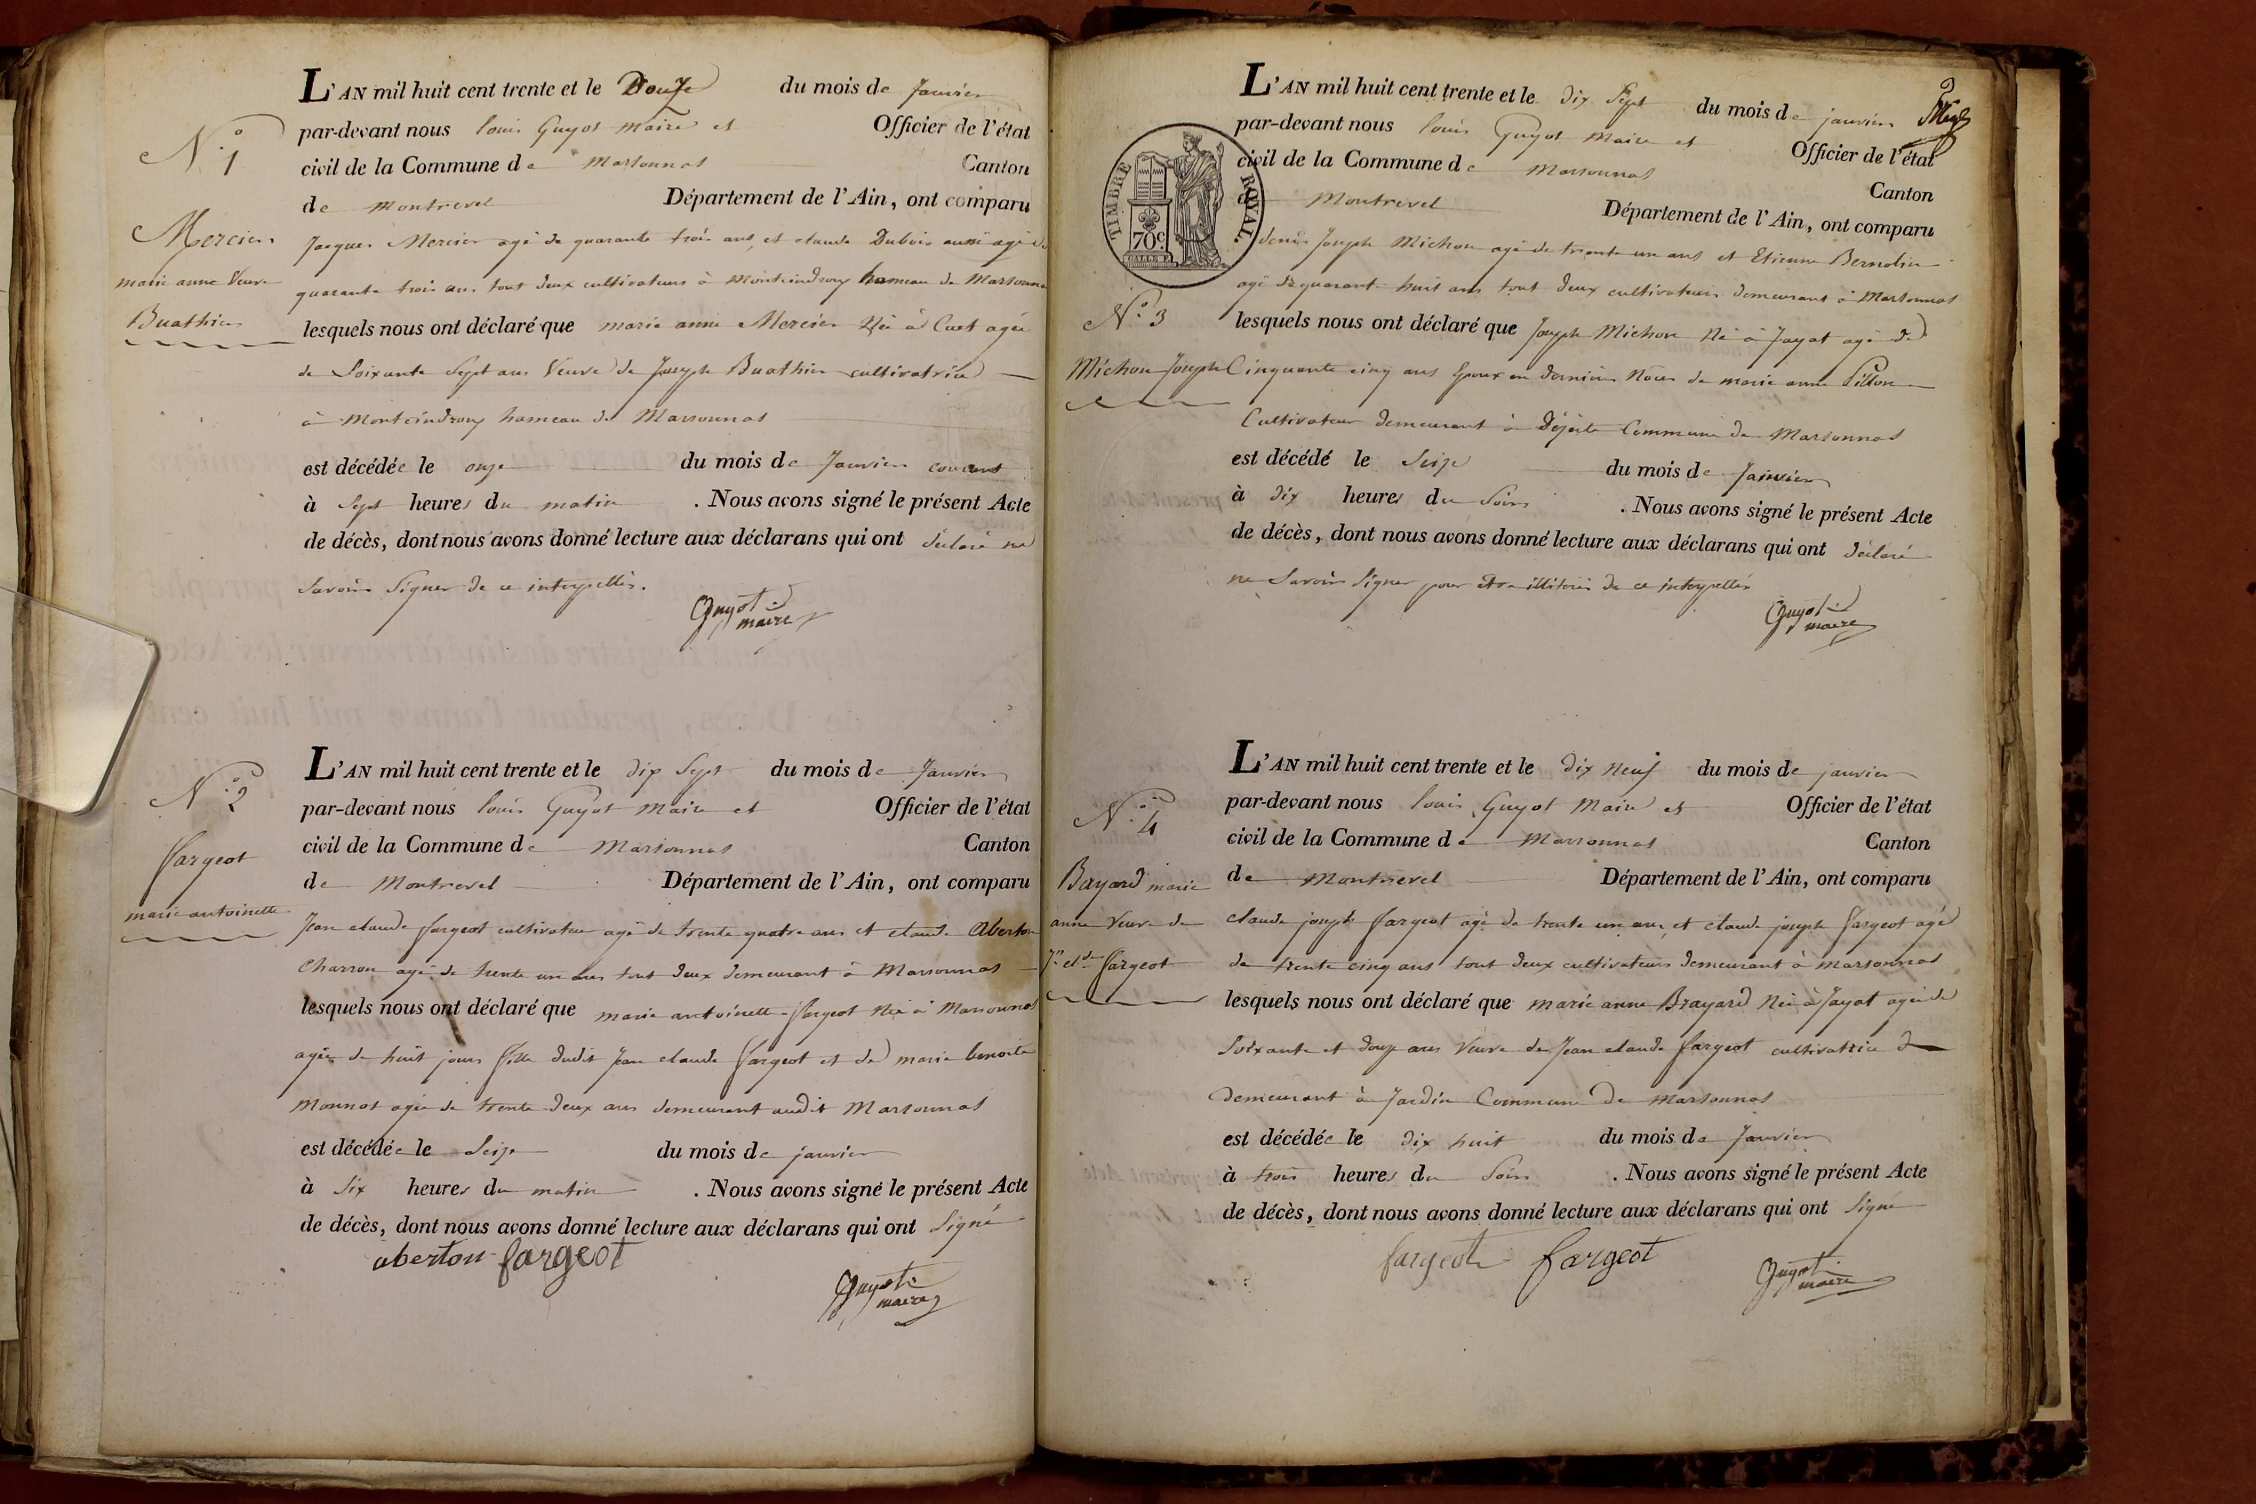 L'AN mil huit cent trente et le Douze du mois de Janvier
N° 1
par-devant nous louis Guyot maire et Officier de l'état
civil de la Commune de Marsonnas Canton
de Montrevel Département de l'Ain, ont comparu
Mercier
Jacques Mercier agé de quarante trois ans, et claude Dubois aussi agé de
marie anne Veuve
quarante trois ans tout deux cultivateurs à Montcindroux hameau de Marsonnas
Buathier
lesquels nous ont déclaré que marie anne Mercier Née à Cuet agée
de Soixante Sept ans Veuve de Joseph Buathier cultivatrice
à Montcindroux hameau de Marsonnas
est décédée le onze du mois de Janvier courant
à Sept heures du matin . Nous avons signé le présent Acte
de décès, dont nous avons donné lecture aux déclarans qui ont déclaré ne
Savoir Signer de ce interpellés.
Guyot
maire
L'AN mil huit cent trente et le dix Sept du mois de Janvier
N° 2
par-devant nous louis Guyot Maire et Officier de l'état
civil de la Commune de Marsonnas Canton
fargeot
de Montrevel Département de l'Ain, ont comparu
marie antoinette
Jean claude fargeot cultivateur agé de trente quatre ans et claude Aberton
Charron agé de trente un ans tout deux demeurant à Marsonnas
lesquels nous ont déclaré que marie antoinette fargeot Née à Marsonnas
agée de huit jours fille dudit Jean claude fargeot et de marie benoite
Monnot agée de trente deux ans demeurant audit Marsonnas
est décédée le Seize du mois de janvier
à Six heures du matin . Nous avons signé le présent Acte
de décès, dont nous avons donné lecture aux déclarans qui ont Signé
aberton fargeot
Guyot
maire
L'AN mil huit cent trente et le dix Sept du mois de janvier
par-devant nous louis Guyot Maire et Officier de l'état
civil de la Commune de Marsonnas Canton
de Montrevel Département de l'Ain, ont comparu
TIMBRE ROYAL.
70c.
denis Joseph Michon agé de trente un ans et Etienne Bernolin
agé de quarante huit ans tout deux cultivateurs demeurant à Marsonnas
N° 3
lesquels nous ont déclaré que Joseph Michon Né à Jayat agé de
Michon Joseph
Cinquante cinq ans Epoux en dernières Nôces de marie anne Pillon
Cultivateur demeurant à Commune de Marsonnas
est décédé le Seize du mois de Janvier
à dix heures du Soir . Nous avons signé le présent Acte
de décès, dont nous avons donné lecture aux déclarans qui ont déclaré
ne Savoir Signer pour être illiterés de ce interpellés
Guyot
maire
L'AN mil huit cent trente et le dix Neuf du mois de janvier
par-devant nous louis Guyot Maire et Officier de l'état
N° 4
civil de la Commune de Marsonnas Canton
Bayard marie
de Montrevel Département de l'Ain, ont comparu
anne Veuve de
claude joseph fargeot agé de trente un ans, et claude joseph fargeot agé
Jn cl.de fargeot
de trente cinq ans tout deux cultivateurs demeurant à Marsonnas
lesquels nous ont déclaré que marie anne Brayard Née à Jayat agée de
Soixante et douze ans Veuve de Jean claude fargeot cultivatrice
demeurant à Jardin Commune de Marsonnas
est décédée le dix huit du mois de Janvier
à trois heures du Soir . Nous avons signé le présent Acte
de décès, dont nous avons donné lecture aux déclarans qui ont Signé
fargeot fargeot
Guyot
maire